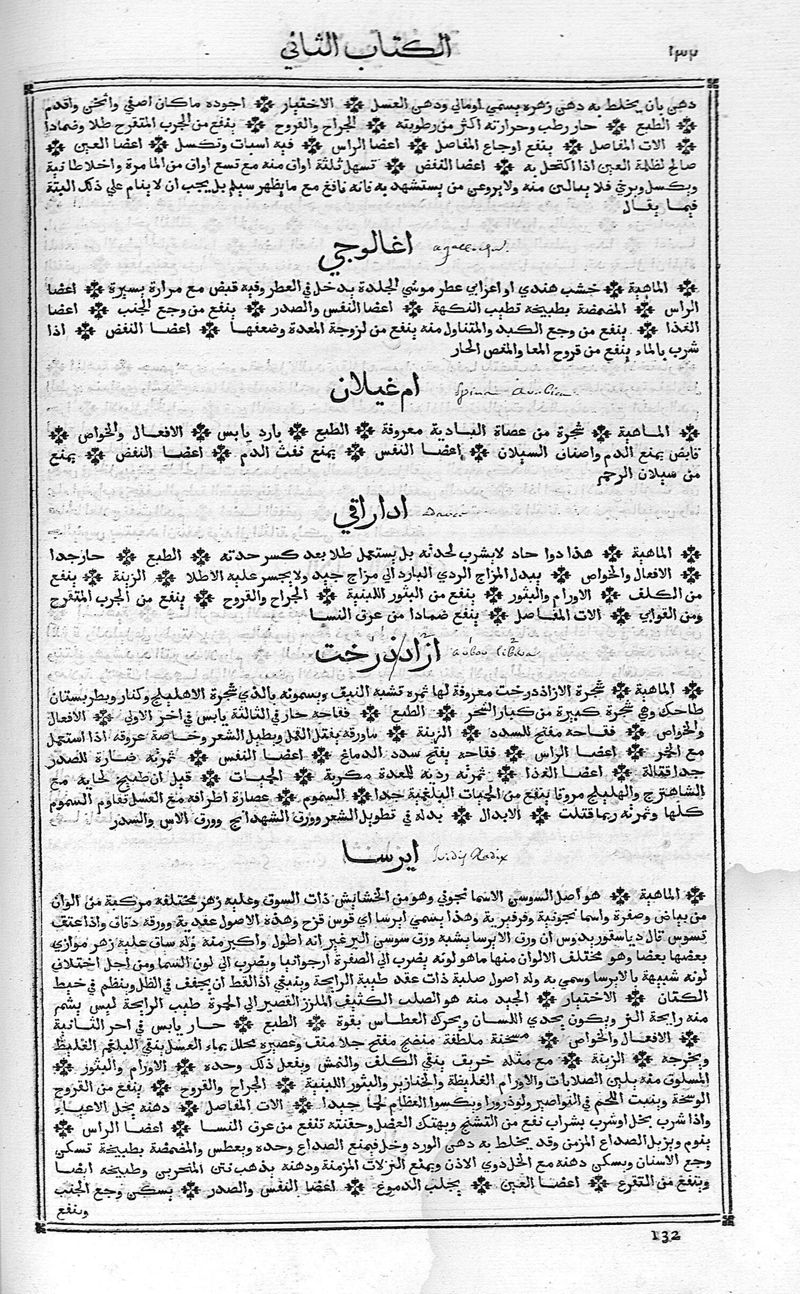 الكتاب الثاني
١٣٢
دهن بان يخلط به دهن زهره يسمي اومالي ودهن العسل ❊ الاختيار ❊ اجوده ماكان اصفي واثخن واقدم
❊ الطبع ❊ حار رطب وحرارته اكثر من رطوبته ❊ الجراح والقروح ❊ ينفع من الجرب المتقرح طلا وضمادا
❊ الات المفاصل ❊ ينفع اوجاع المفاصل ❊ اعضا الراس ❊ فيه اسبات وتكسل ❊ اعضا العين ❊
صالح لظلمة العين اذا اكتحل به ❊ اعضا النفض ❊ تسهل ثلثة اواق منه مع تسع اواق من الما مرة واخلاطا نية
ويكسل ويرخي فلا يبالين منه ولا يروعن من يستشهد به فانه نافع مع مايظهر سيلم بل يجب ان لا ينام علي ذلك البتة
فيما يقال
اغالوجي
❊ الماهية ❊ خشب هندي او اعرابي عطر موشي الجلدة يدخل في العطر وفيه قبض مع مرارة يسيرة ❊ اعضا
الراس ❊ المضمضة بطبيخه تطيب النكهة ❊ اعضا النفس والصدر ❊ ينفع من وجع الجنب ❊ اعضا
الغذا ❊ ينفع من وجع الكبد والمتناول منه ينفع من لزوجة المعدة وضعفها ❊ اعضا النفض ❊ اذا
شرب بالماء ينفع من قروح المعا والمغص الحار
ام غيلان
❊ الماهية ❊ شجرة من عضاة البادية معروفة ❊ الطبع ❊ بارد يابس ❊ الافعال والخواص ❊
قابض يمنع الدم واصناف السيلان ❊ اعضا النفس ❊ يمنع نفث الدم ❊ اعضا النفض ❊ يمنع
من سيلان الرحم
اداراقي
❊ الماهية ❊ هذا دوا حاد لايشرب لحدته بل يستعمل طلا بعد كسر حدته ❊ الطبع ❊ حار جدا
❊ الافعال والخواص ❊ يبدل المزاج الردي البارد الي مزاج جيد ولا يجسر عليه الا طلا ❊ الزينة ❊ ينفع
من الكلف ❊ الاورام والبثور ❊ ينفع من البثور اللبنية ❊ الجراح والقروح ❊ ينفع من الجرب المتقرح
ومن القوابي ❊ الات المفاصل ❊ ينفع ضمادا من عرق النسا
ازاددرخت
❊ الماهية ❊ شجرة الازاددرخت معروفة لها ثمره تشبه النبق ويسمونه بالذي شجرة الاهليلج وكنار وبطبرستان
طاحك وهي شجرة كبيرة من كبار الشجر ❊ الطبع ❊ فقاحه حار في الثالثة يابس في اخر الاولي ❊ الافعال
والخواص ❊ فقاحه مفتح للسدد ❊ الزينة ❊ ماورقه يقتل القمل ويطيل الشعر وخاصة عروقه اذا استعمل
مع الخمر ❊ اعضا الراس ❊ فقاحه يفتح سدد الدماغ ❊ اعضا النفس ❊ ثمرته ضارة للصدر
جدا قتالة ❊ اعضا الغذا ❊ ثمرته ردية للمعدة مكربة ❊ الحميات ❊ قيل ان طبيخ لحايه مع
الشاهترج والهليلج مروقا ينفع من الحميات البلغمية جدا ❊ السموم ❊ عصارة اطرافه مع العسل تقاوم السموم
كلها وثمرته ربما قتلت ❊ الابدال ❊ بدله في تطويل الشعر وورق الشهدانج وورق الاس والسدر
ايرسا
❊ الماهية ❊ هو اصل السوسن الاسمانجوني وهو من الحشايش ذات السوق وعليه زهر مختلفه مركبة من الوان
من بياض وصفرة واسمانجونية وفرفيرية وهذا يسمي ايرسا اي قوس قزح وهذه الاصول عقدية وورقه دقاق واذا عتقت
تسوس قال دياسقوريدوس ان ورق الايرسا يشبه ورق سوسن البر غير انه اطول واكبر منه وله ساق عليه زهر موازي
بعضها بعضا وهو مختلف الالوان منها ماهو لونه يضرب الي الصفرة ارجوانيا ويضرب الي لون السما ومن اجل اختلاف
لونه شبيهة بالايرسا وسمي به وله اصول صلبة ذات عقد طيبة الرايحة وينبغي اذا لقط ان يجفف في الظل وينظم في خيط
الكتان ❊ الاختيار ❊ الجيد منه هو الصلب الكثيف الملزز القصير الي الحمرة طيب الرايحة ليس يشم
منه رايحة النز ويكون يحدي اللسان ويحرك العطاس بقوة ❊ الطبع ❊ حار يابس في اخر الثانية
❊ الافعال والخواص ❊ مسخنة ملطفة منضج مفتح جلا منق وعصيره محلل بماء العسل ينقي البلغم الغليظ
ويخرجه ❊ الزينة ❊ مع مثله خربق ينقي الكلف والنمش ويفعل ذلك وحده ❊ الاورام والبثور ❊
المسلوق منه يلين الصلابات والاورام الغليظة والخنازير والبثور اللبنية ❊ الجراح والقروح ❊ ينفع من القروح
الوسخة وينبت اللحم في النواصير ولوذرورا ويكسوا العظام لحما جيدا ❊ الات المفاصل ❊ دهنه يحل الاعياء
واذا شرب بخل اوشرب بشراب نفع من التشنج وبهتك العضل وحقنته تنفع من عرق النسا ❊ اعضا الراس ❊
ينوم ويزيل الصداع المزمن وقد يخلط به دهن الورد وخل فيمنع الصداع وحده ويعطس والمضمضة بطبيخه تسكن
وجع الاسنان ويسكن دهنه مع الخل دوي الاذن ويمنع النزلات المزمنة ودهنه يذهب نتن المنخرين وطبيخه ايضا
وينفع من التقرع ❊ اعضا العين ❊ يجلب الدموع ❊ اعضا النفس والصدر ❊ يسكن وجع الجنب
وينفع
132